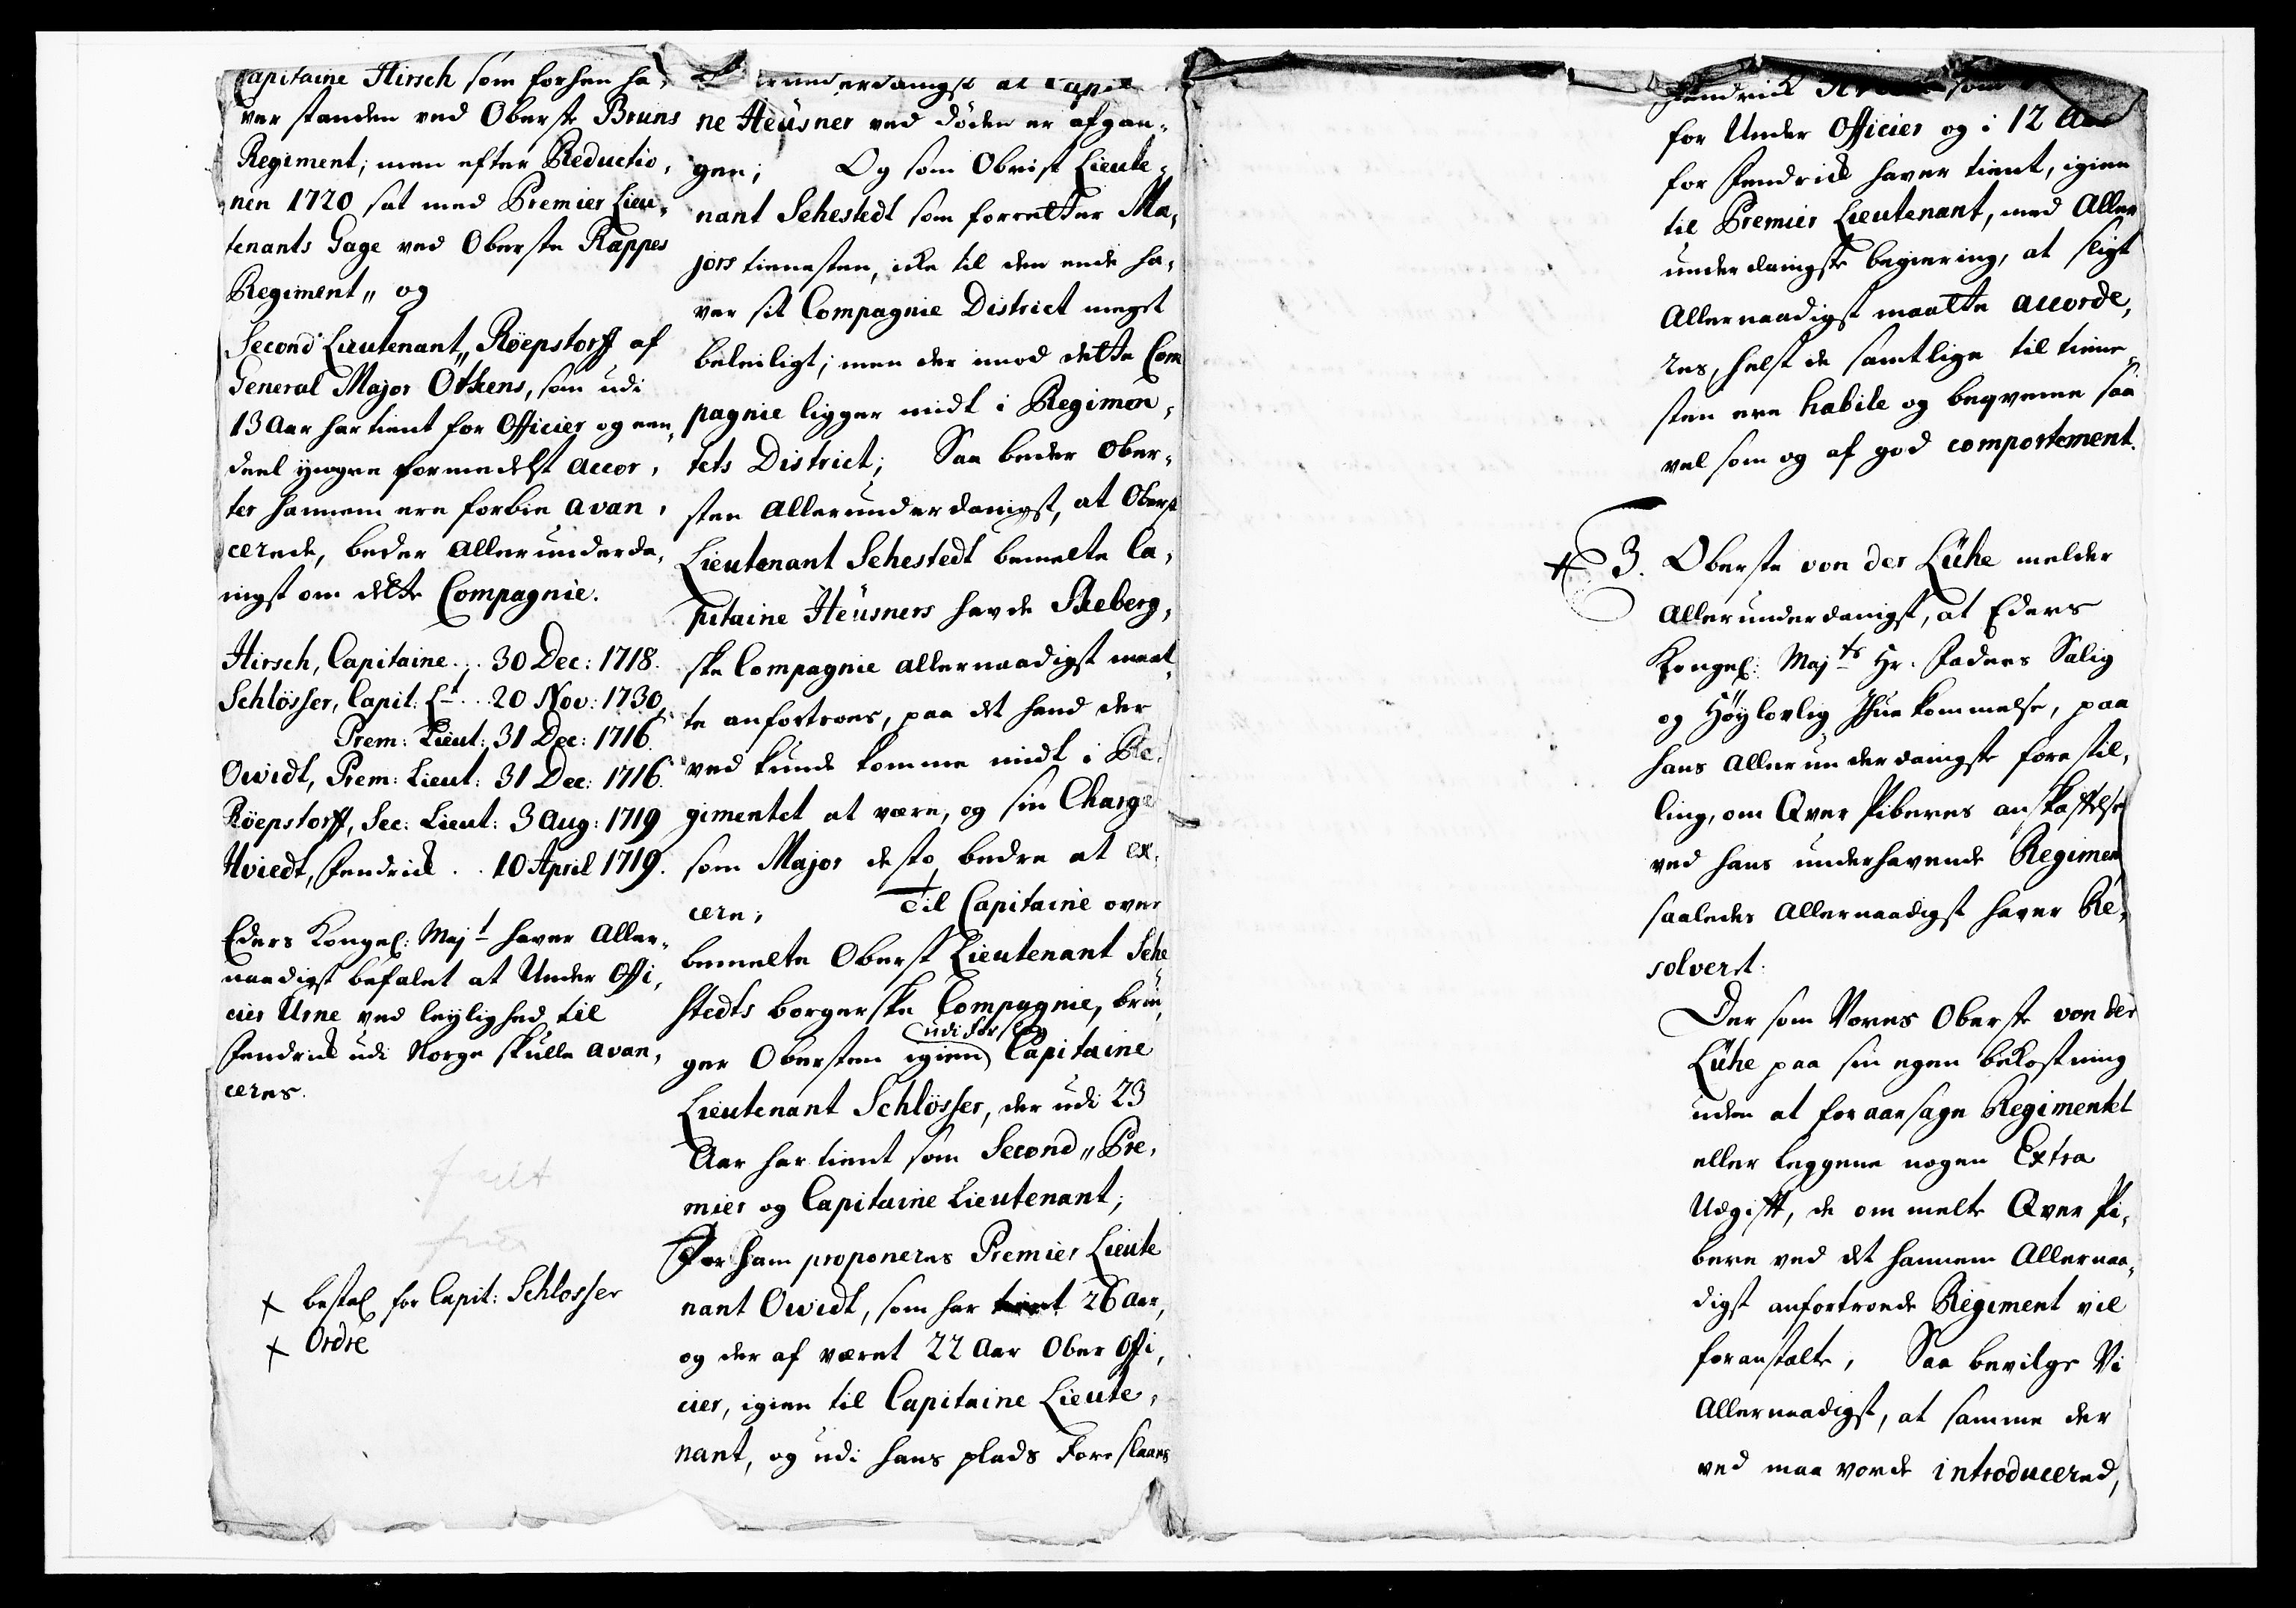 Capitaine Hirsch som forhen ha-
ver standen ved Oberste Bruns
Regiment; men efter Reductio-
nen 1720 sat med Premier Lieu-
tenants Gage ved Oberste Rappes
Regiment,, og
Second Lieutenant,, Röepstorff af
General Major Ötkens, som udi
13 Aar har tient for Officier og een
deel yngre formedelst accor-
ter hannem ere forbie avan-
cerede, beder allerunderda-
nigst om dette Compagnie.
Hirsch, Capitaine . . . 30 Dec: 1718.
Schlösser, Capit: Lt . . 20 Nov: 1730,
Prem: Lieut: 31 Dec: 1716.
Owidt, Prem: Lieut: 31 Dec: 1716.
Röepstorff, Sec: Lieut: 3 Aug: 1719
Hviedt, Fendrick . . 10 April 1719.
Eders Kongel: Majt haver Aller-
naadigst befalet at Under Offi-
cier Urne ved leylighed til
Fendrick udi Norge skulle avan-
ceres.
× bestal for Capit: Schlosser
× Ordre
erunderdanigst at Capit
ne Heüsner ved døden er afgan-
gen; Og som Obrist Lieute-
nant Sehestedt som forretter Ma-
jors tienesten, icke til den ende ha-
ver sit Compagnie District meget
beleiligt; men der imod dette Com
pagnie ligger midt i Regimen-
tets District; Saa beder Ober-
sten Allerunderdanigst, at Oberst
Lieutenant Sehestedt bemelte Ca-
pitaine Heüsners havde Skeberg-
ske Compagnie allernaadigst maat-
te anfortroes, paa det hand der
ved kunde komme midt i Re-
gimentet at være, og sin Charge
som Major desto bedre at ex-
cere; Til Capitaine over
bemelte Oberst Lieutenant Sehe
stedts borgerske Compagnie, brin-
udi forslag
ger Obersten igien Capitaine
Lieutenant Schlösser, der udi 23
Aar har tient som Second,, Pre-
mier og Capitaine Lieutenant;
For ham proponeres Premier Lieute
nant Owidt, som har tient 26 Aar,
og der af været 22 Aar Ober Offi-
cier, igien til Capitaine Lieute-
nant, og udi hans plads Foreslaaes
Fendrick som
for Under Officier og i 12 Aar
for Fendrick haver tient, igien
til Premier Lieutenant, med Aller
underdanigste begiering, at sligt
Allernaadigst maatte accorde-
res, helst de samtlige til tiene-
sten ere habile og beqveme saa
vel som og af god comportement.
× 3. Oberste von der Lühe melder
Allerunderdanigst, at Eders
Kongel: Majts Hr. Faders Salig
og Høylovlig Ihuekommelse, paa
hans Allerunderdanigste forestil-
ling, om Qver Piberes anskaffelse
ved hans underhavende Regimen
saaledes Allernaadigst haver Re-
solveret:
Der som Vores Oberste von der
Lühe paa sin egen bekostning
uden at foraarsage Regimentet
eller leggene nogen Extra
Udgifft, de ommelte Qver Pi-
bere ved det hannem Allernaa-
digst anfortroede Regiment vil
foranstalte, Saa bevilge Vi
Allernaadigst, at samme der
ved maa vorde introducered,